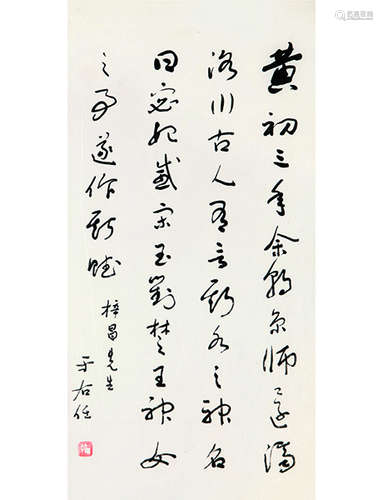 黄初三年余朝京師還濟
洛川古人有言斯水之神名
曰宓妃感宋玉對楚王神女
之事遂作斯賦
梓昌先生
于右任